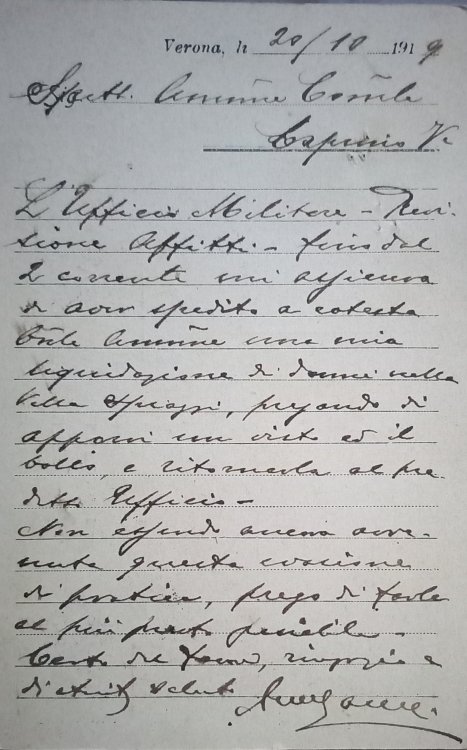 Verona, li 20/10 1919
Spett. Ammne Comle
Caprino V.
L'Ufficio Militare - Revi-
sione Affitti - fino dal
2 corrente mi assicura
di aver spedito a cotesta
Comle Ammne una mia
liquidazione di danni nella
Villa, pregando di
apporvi un visto ed il
bollo, e ritornarla al pre-
detto Ufficio -
Non essendo ancora avve-
nuta questa evasione
di pratica, prego di farlo
al più presto possibile -
Certo del favore, ringrazio e
distinti saluti